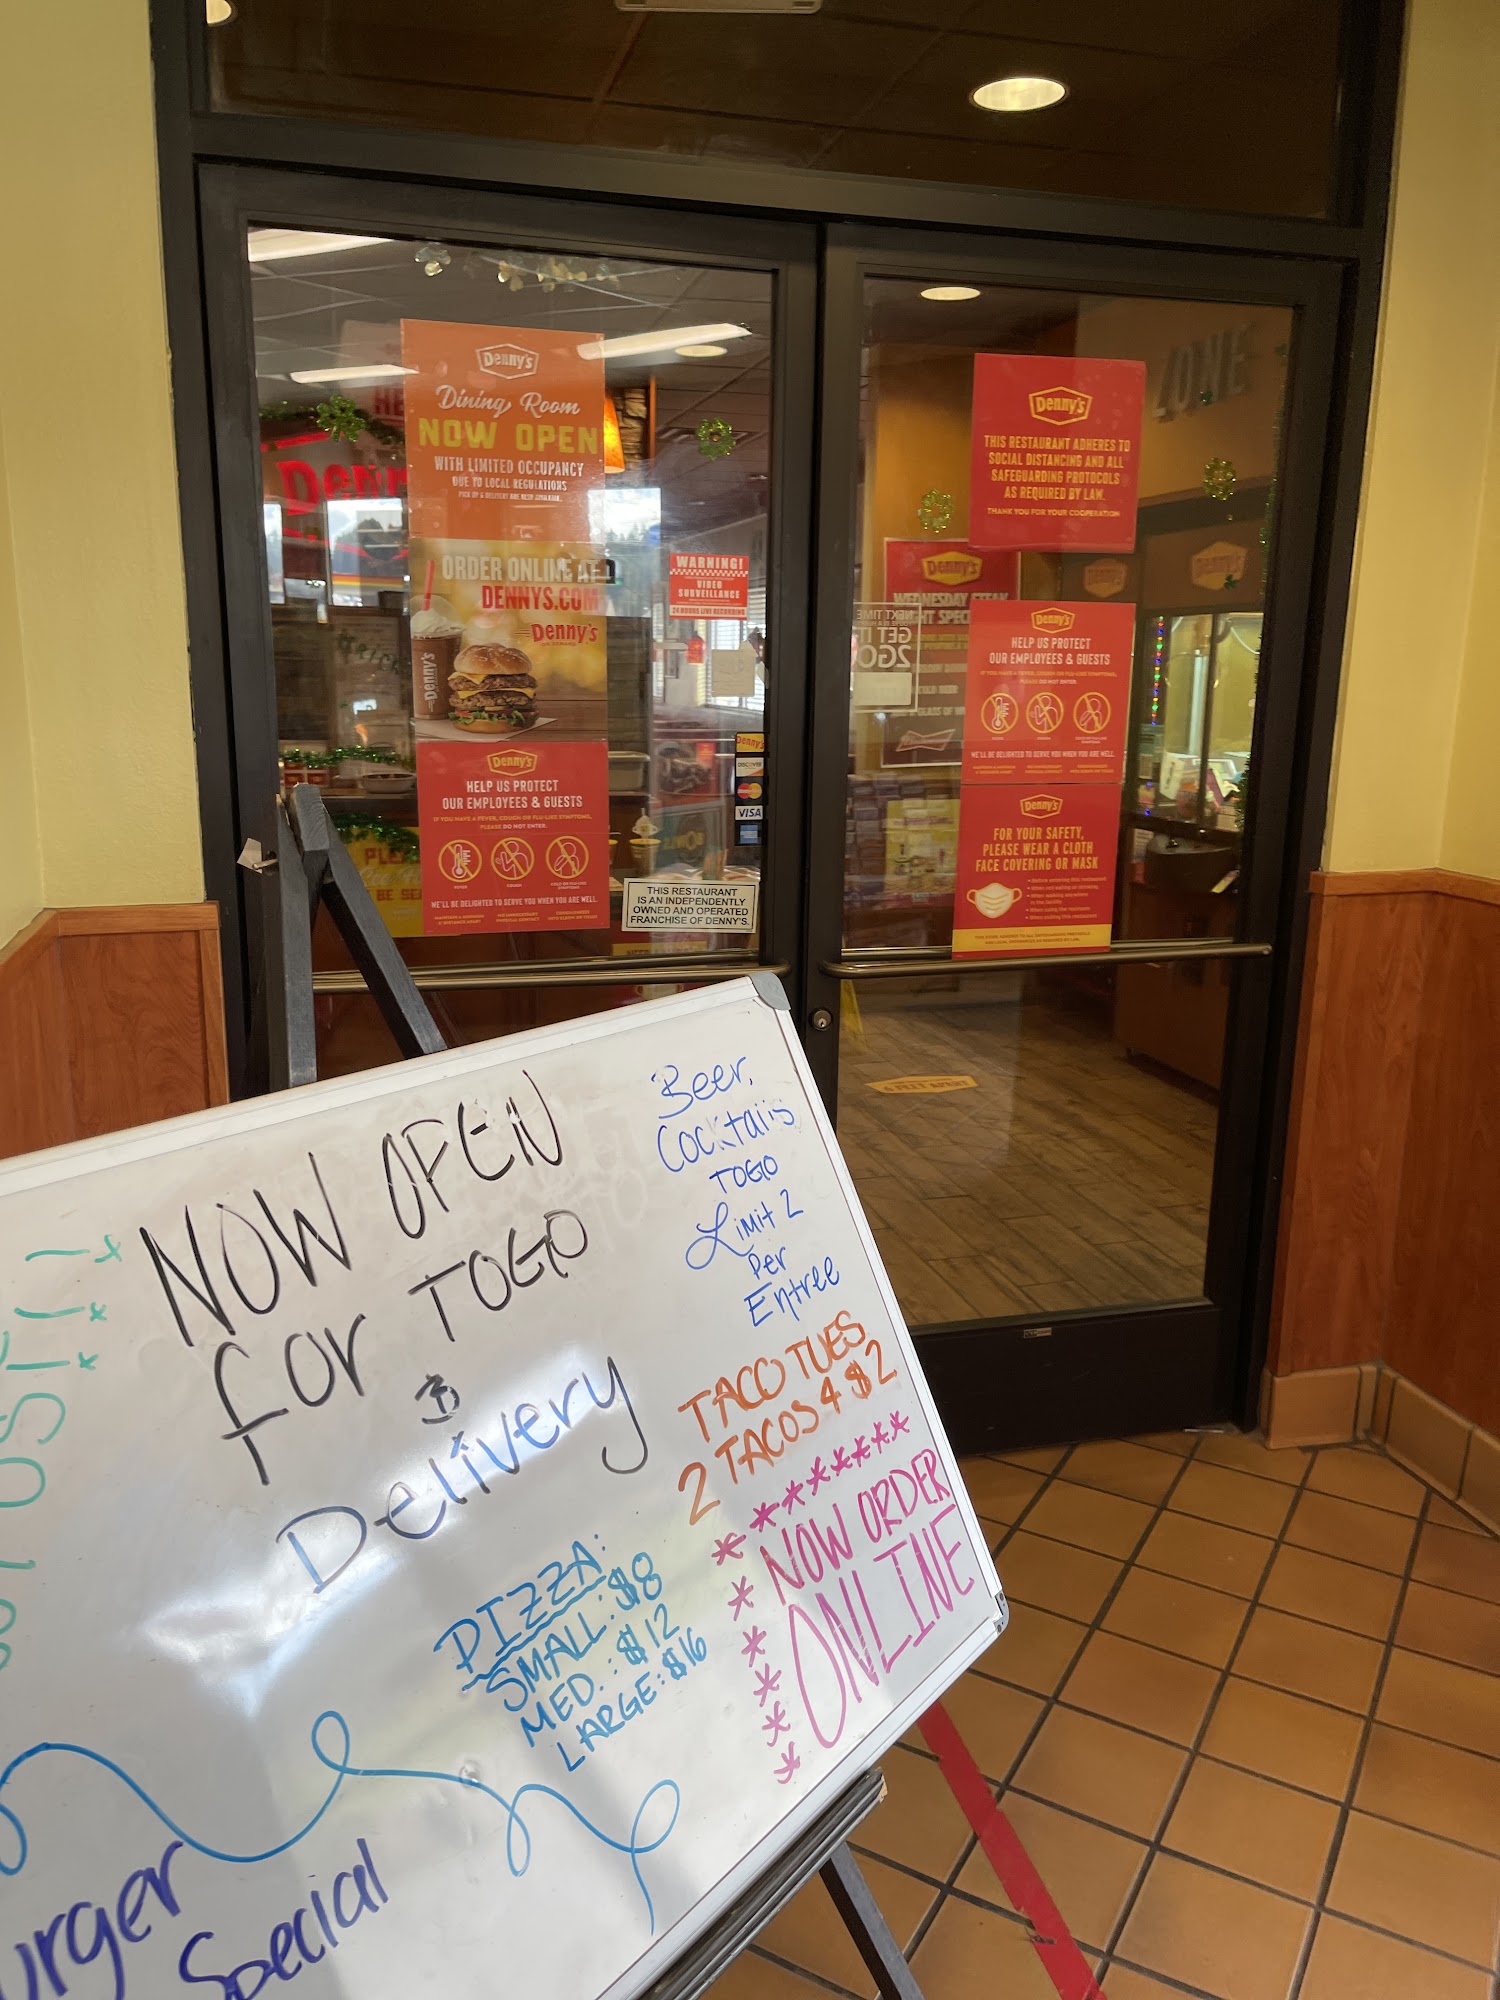 Denny's
Dining Room
NOW OPEN
WITH LIMITED OCCUPANCY
DUE TO LOCAL REGULATIONS
ORDER ONLINE AT
DENNYS.COM
Denny's
Denny's
Denny's
HELP US PROTECT
OUR EMPLOYEES & GUESTS
IF YOU HAVE A FEVER, COUGH OR FLU-LIKE SYMPTOMS,
PLEASE DO NOT ENTER.
FEVER COUGH
WE'LL BE DELIGHTED TO SERVE YOU WHEN YOU ARE WELL.
WARNING!
VIDEO
SURVEILLANCE
24 HOURS LIVE RECORDING
Denny's
DISCOVER
VISA
THIS RESTAURANT
IS AN INDEPENDENTLY
OWNED AND OPERATED
FRANCHISE OF DENNY'S.
Denny's
THIS RESTAURANT ADHERES TO
SOCIAL DISTANCING AND ALL
SAFEGUARDING PROTOCOLS
AS REQUIRED BY LAW.
THANK YOU FOR YOUR COOPERATION
Denny's
WEDNESDAY STEAK
NEXT TIME
GET IT
2GO
Denny's
HELP US PROTECT
OUR EMPLOYEES & GUESTS
IF YOU HAVE A FEVER, COUGH OR FLU-LIKE SYMPTOMS,
PLEASE DO NOT ENTER.
WE'LL BE DELIGHTED TO SERVE YOU WHEN YOU ARE WELL.
Denny's
FOR YOUR SAFETY,
PLEASE WEAR A CLOTH
FACE COVERING OR MASK
6 FEET APART
NOW OPEN
for TOGO
Delivery
Beer,
Cocktails
TOGO
Limit 2
Per
Entree
TACO TUES
2 TACOS 4 $2
NOW ORDER
ONLINE
PIZZA:
SMALL: $8
MED.: $12
LARGE: $16
Special